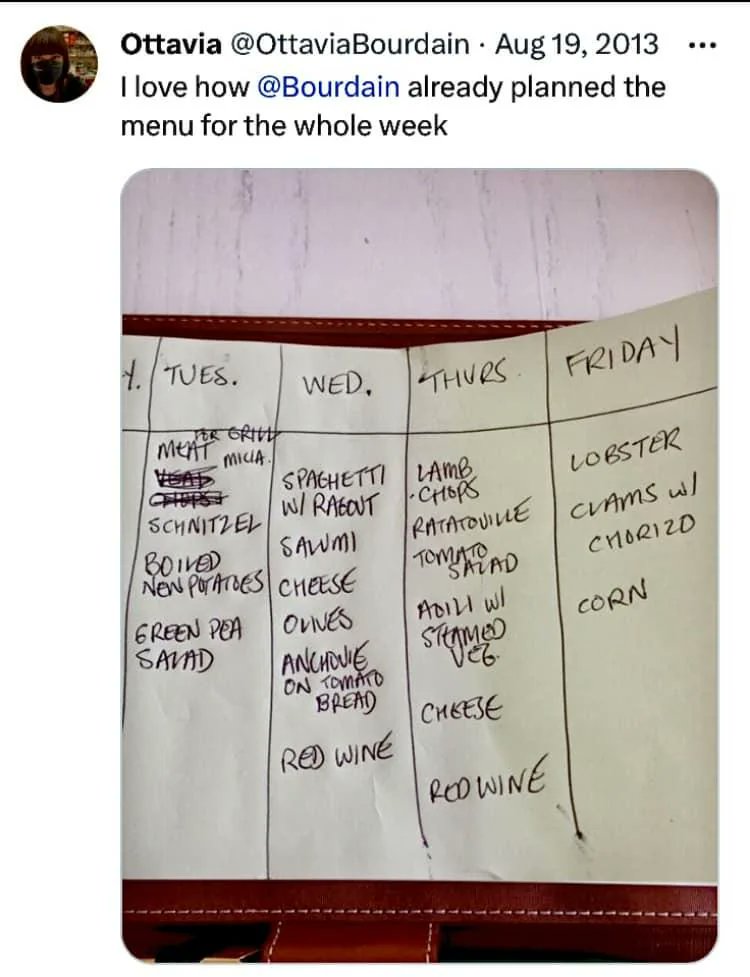 Ottavia @OttaviaBourdain · Aug 19, 2013 ...
I love how @Bourdain already planned the
menu for the whole week
Y.
TUES.
FOR GRILL
MEAT
SCHNITZEL
BOILED
NEW POTATOES
GREEN PEA
SALAD
WED.
SPAGHETTI
W/ RAGOUT
SALUMI
CHEESE
OLIVES
ANCHOVIE
ON TOMATO
BREAD
RED WINE
THURS.
LAMB
CHOPS
RATATOUILLE
TOMATO
SALAD
AOILI W/
STEAMED
VEG.
CHEESE
RED WINE
FRIDAY
LOBSTER
CLAMS W/
CHORIZO
CORN